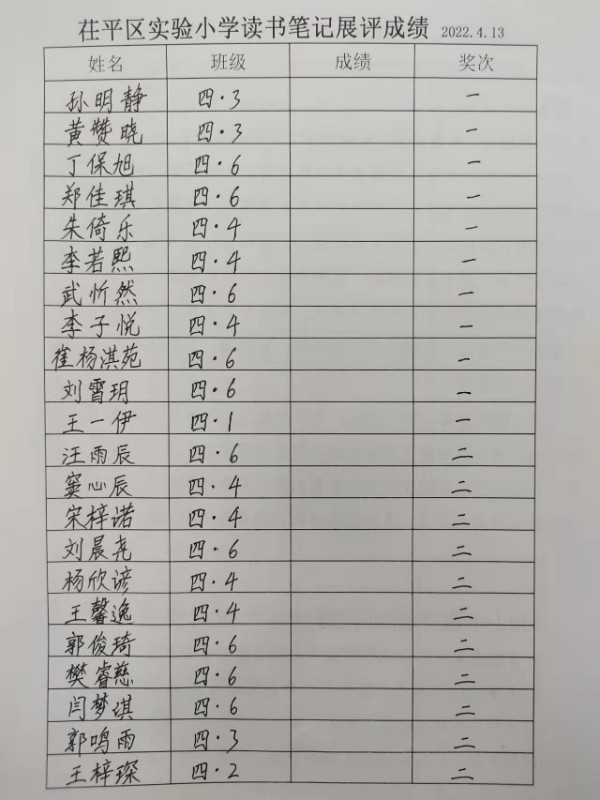 茌平区实验小学读书笔记展评成绩 2022.4.13
姓名 班级 成绩 奖次
孙明静 四·3 一
黄赞晓 四·3 一
丁保旭 四·6 一
郑佳琪 四·6 一
朱倚乐 四·4 一
李若熙 四·4 一
武忻然 四·6 一
李子悦 四·4 一
崔杨淇苑 四·6 一
刘霄玥 四·6 一
王一伊 四·1 一
汪雨辰 四·6 二
窦心辰 四·4 二
宋梓诺 四·4 二
刘晨尧 四·6 二
杨欣谚 四·4 二
王馨逸 四·4 二
郭俊琦 四·6 二
樊睿慈 四·6 二
闫梦琪 四·6 二
郭鸣雨 四·3 二
王梓琛 四·2 二